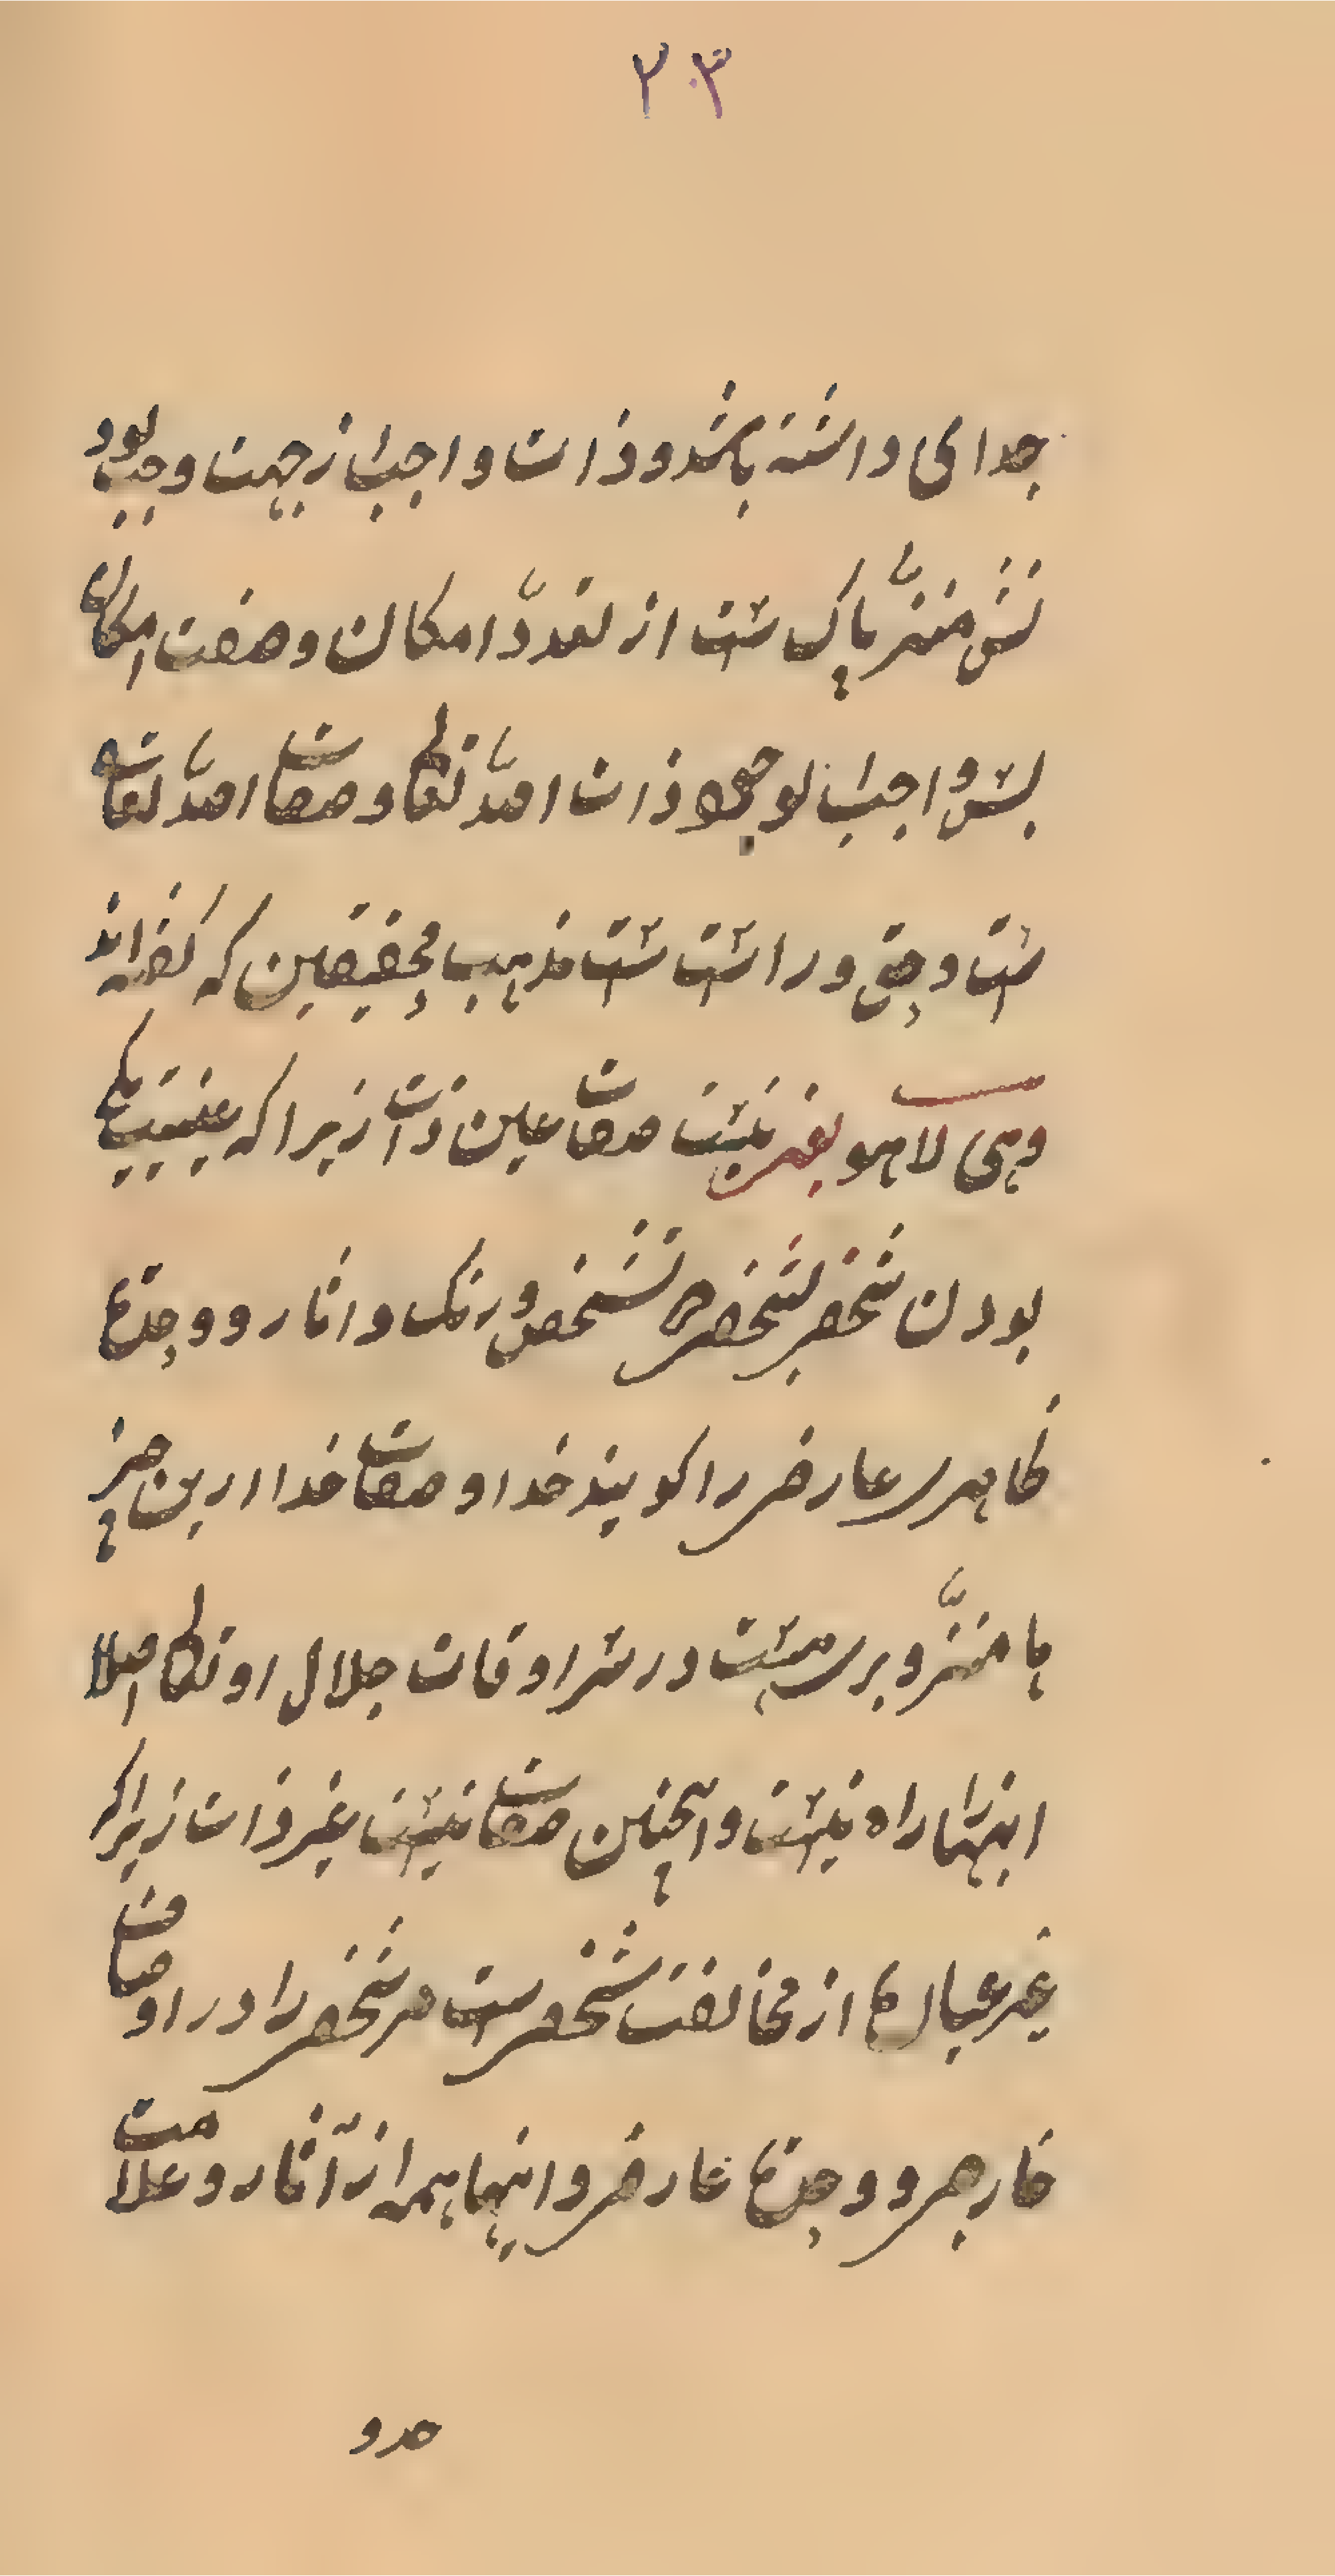 ٢٠٣
جدای داشته باشد و ذات واجب از جهت وجب بود
نش منزّه پاک است از تعدّد امکان و صفت امکان
پس واجب لوجود ذات الله تعالی و صفات الله تعالی
است و حق و راست است مذهب محققین که گفته اند
وهی لا هو یعنی نیست صفات عین ذات زیرا که عینیت یکی
بودن شخص بشخص در تشخص و رنگ و آثار و وجدع
ظاهر عارض را گویند خدا و صفات خدا ازین چیز
ها منزّه و بری ست در سرادقات جلال او تعالی اصلا
اینها را راه نیست و همچنین صفات نیست غیر ذات زیرا که
غیر عبارت از مخالفت شخص است مر شخص را در اوصاف
خارجی و عارض و اینها همه از آثار و علامت
حدو